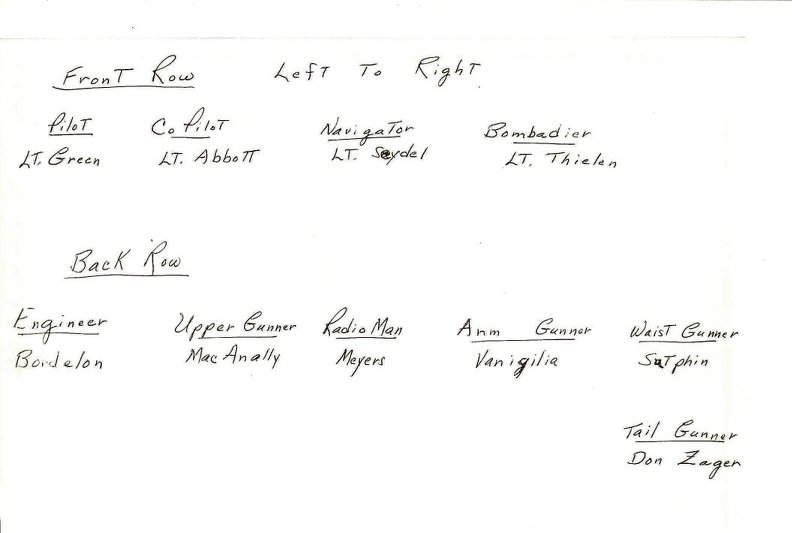 Front Row Left To Right
Pilot Co Pilot Navigator Bombadier
LT. Green LT. Abbott LT. Seydel LT. Thielen
Back Row
Engineer Upper Gunner Radio Man Arm Gunner Waist Gunner
Bordelon Mac Anally Meyers Vanigilia Sutphin
Tail Gunner
Don Zager